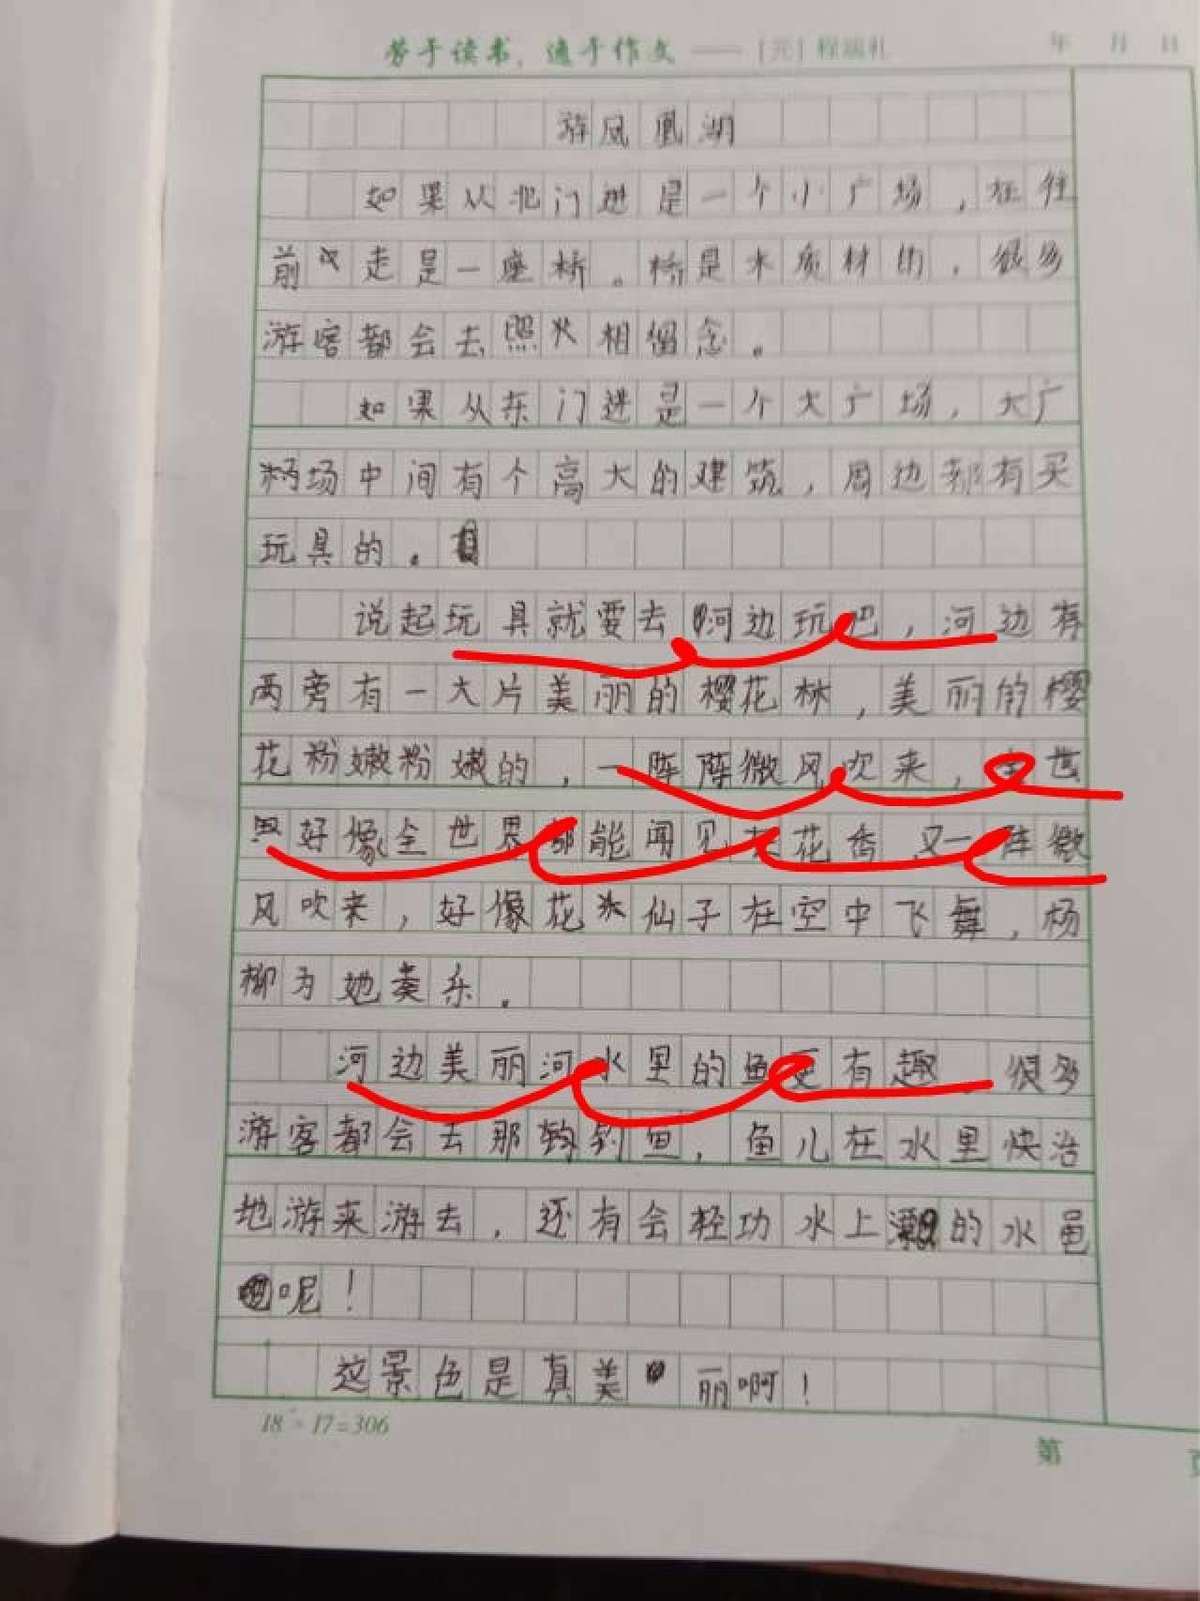 劳于读书，逸于作文——[元]程端礼
年 月 日
游凤凰湖
如果从北门进是一个小广场，在往
前走是一座桥。桥是木质材的，很多
游客都会去照相留念。
如果从东门进是一个大广场，大广
场中间有个高大的建筑，周边都有买
玩具的。
说起玩具就要去河边玩吧，河边有
两旁有一大片美丽的樱花林，美丽的樱
花粉嫩粉嫩的，一阵阵微风吹来，全世
界好像全世界都能闻见花香又一阵微
风吹来，好像花仙子在空中飞舞，杨
柳为她奏乐。
河边美丽河水里的鱼更有趣 很多
游客都会去那钓鱼，鱼儿在水里快活
地游来游去，还有会轻功水上的水黾
呢！
这景色是真美丽啊！
18×17=306
第 页